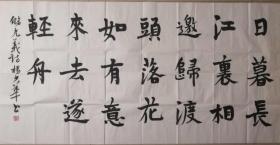 日暮長
江裏相
邀歸渡
頭落花
如有意
來去遂
輕舟
儲光羲詩 楊